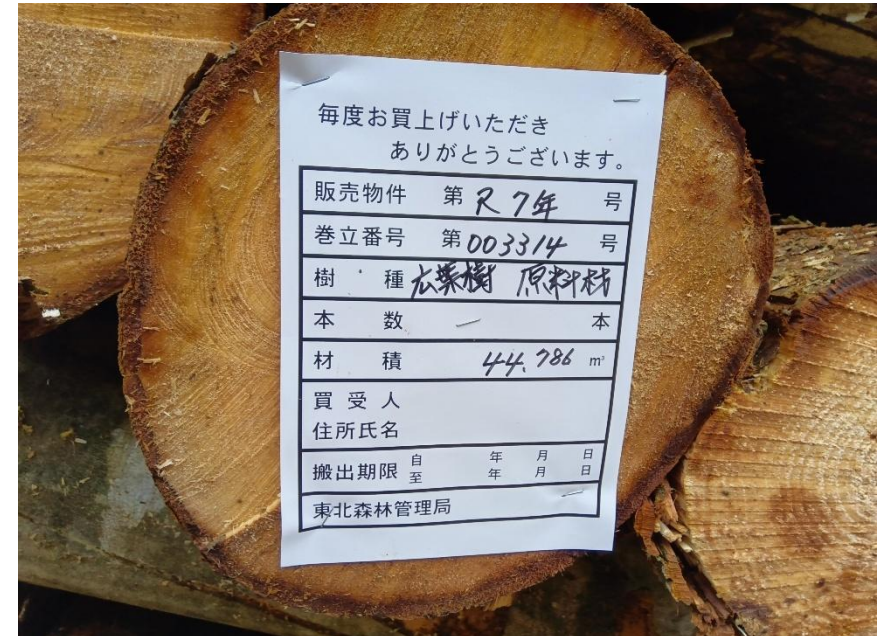 毎度お買上げいただき
ありがとうございます。
販売物件 第 R7年 号
巻立番号 第 003314 号
樹 種 広葉樹 原料材
本 数 — 本
材 積 44.786 m³
買受人
住所氏名
搬出期限 自 年 月 日
至 年 月 日
東北森林管理局